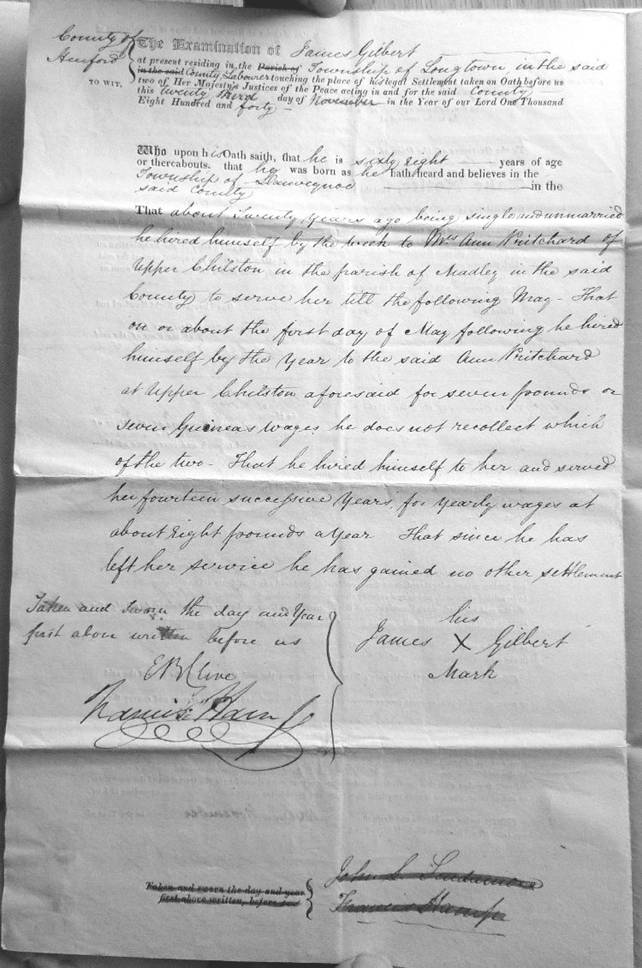 County of
Hereford
TO WIT,
The Examination of James Gilbert
at present residing in the Parish of Township of Longtown in the said
in the said County, Labourer touching the place of his legal Settlement taken on Oath before us
two of Her Majesty's Justices of the Peace acting in and for the said County
this twenty third day of November in the Year of our Lord One Thousand
Eight Hundred and forty
Who upon his Oath saith, that he is sixty eight years of age
or thereabouts. that he was born as he hath heard and believes in the
Township of in the
said County
That about Twenty Years ago being single and unmarried
he hired himself by the week to Mrs Ann Pritchard of
Upper Chilston in the parish of Madley in the said
County to serve her till the following May - That
on or about the first day of May following he hired
himself by the Year to the said Ann Pritchard
at Upper Chilston aforesaid for seven pounds or
seven Guineas wages he does not recollect which
of the two - That he hired himself to her and served
her fourteen successive Years for yearly wages at
about Eight pounds a Year That since he has
left her service he has gained no other settlement
Taken and Sworn the day and Year
first above written before us
his
James X Gilbert
Mark
Taken and sworn the day and year
first above written, before us
John
Francis